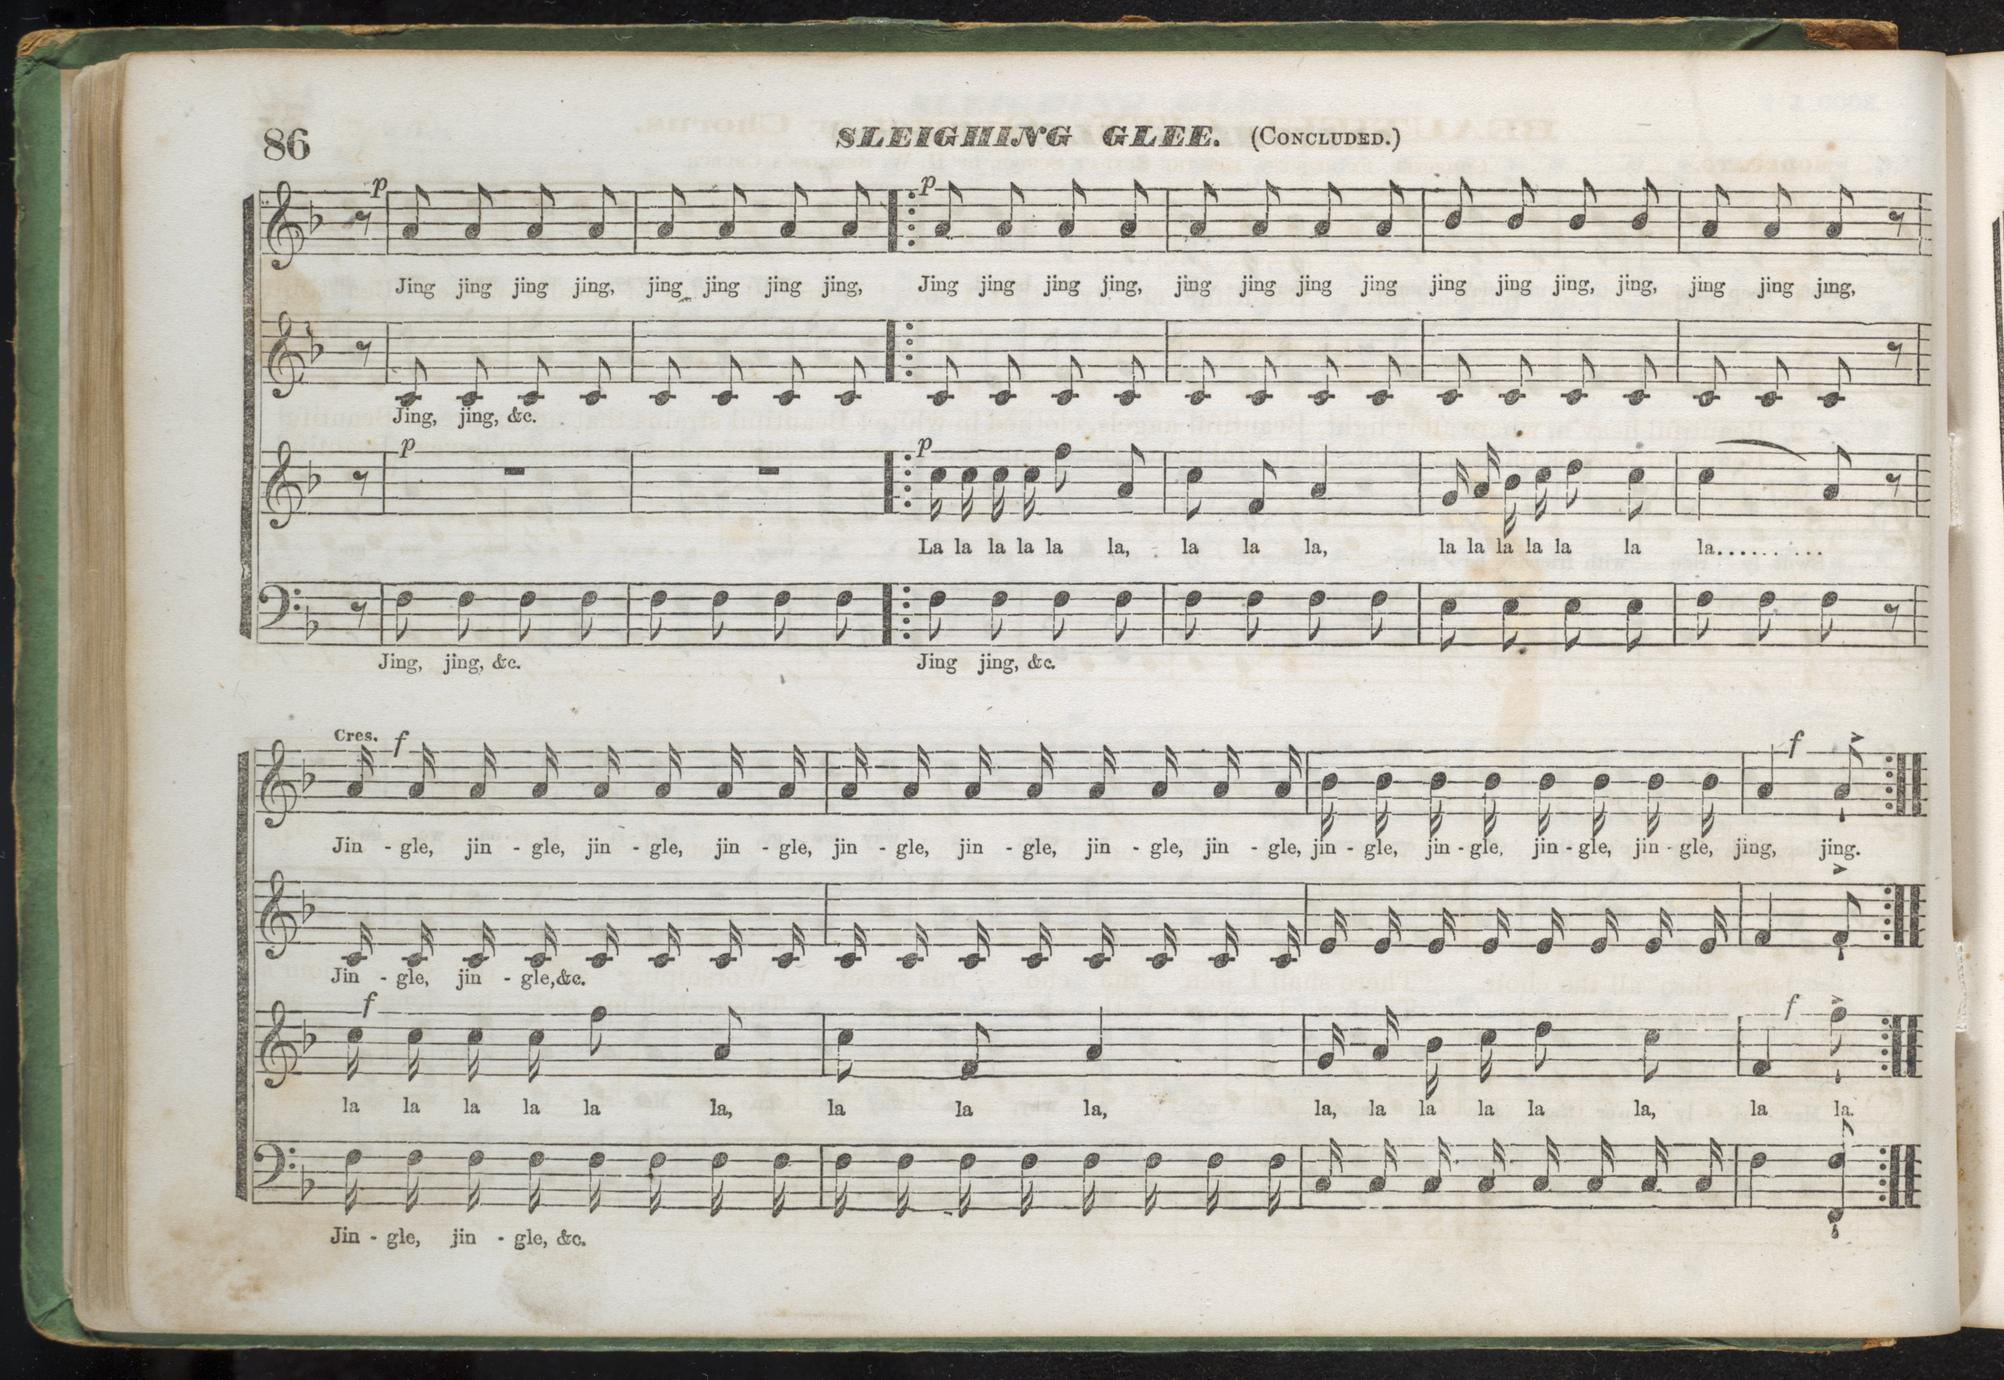 86 SLEIGHING GLEE. (Concluded.)
p p
Jing jing jing jing, jing jing jing jing, Jing jing jing jing, jing jing jing jing jing jing jing, jing, jing jing jing,
Jing, jing, &c.
p p
La la la la la la, la la la, la la la la la la la.........
Jing, jing, &c. Jing jing, &c.
Cres. f f
Jin - gle, jin - gle, jin - gle, jin - gle, jin - gle, jin - gle, jin - gle, jin - gle, jin - gle, jin - gle, jin - gle, jin - gle, jing, jing.
Jin - gle, jin - gle, &c.
f f
la la la la la la, la la la, la, la la la la la, la la.
Jin - gle, jin - gle, &c.